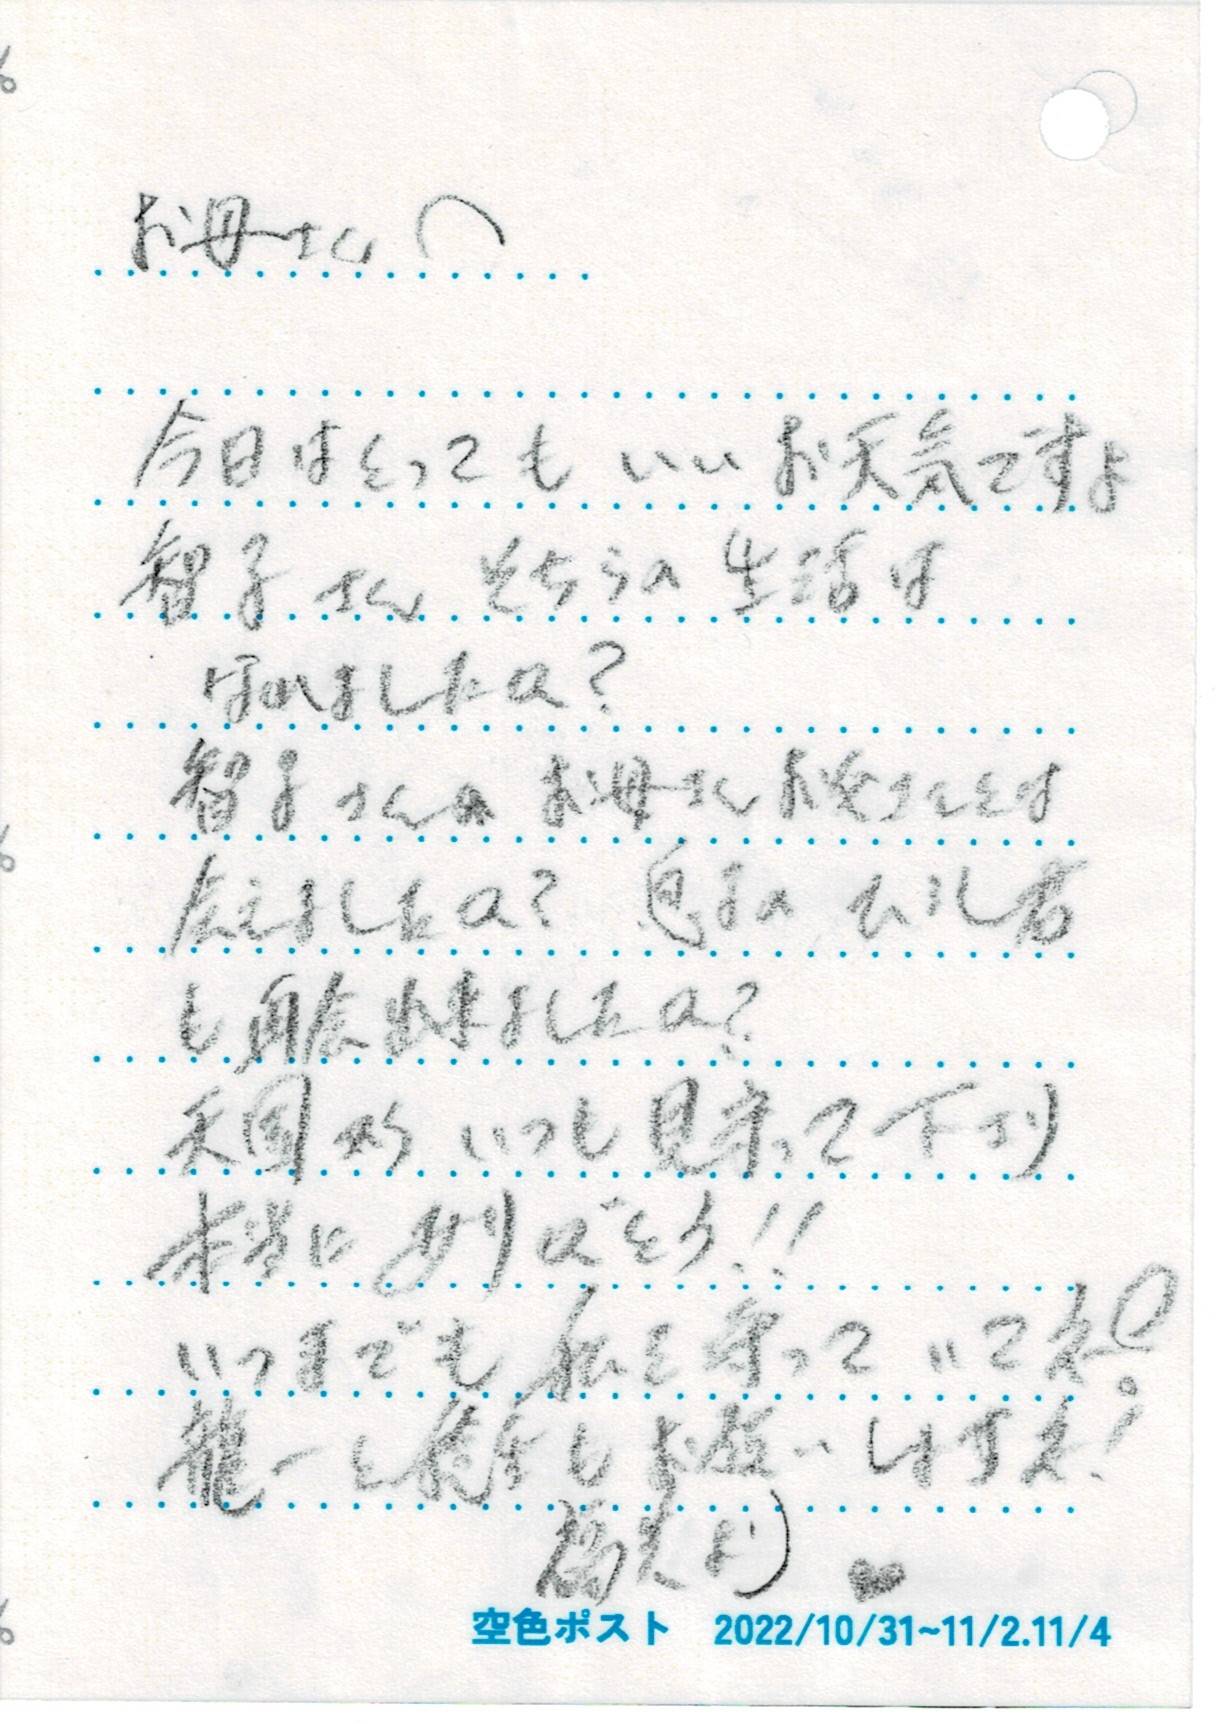 お母さんへ
今日はとってもいいお天気ですよ
智子さん そちらの生活は
なれましたか?
智子さんの お母さん お父さんとは
会えましたか? 息子の ひろし君
も 再会出来ましたか?
天国から いつも 見守って下さり
本当に ありがとう!!
いつまでも 私を 守って いてネ
龍一と も お願いしますネ!
より
空色ポスト 2022/10/31~11/2.11/4